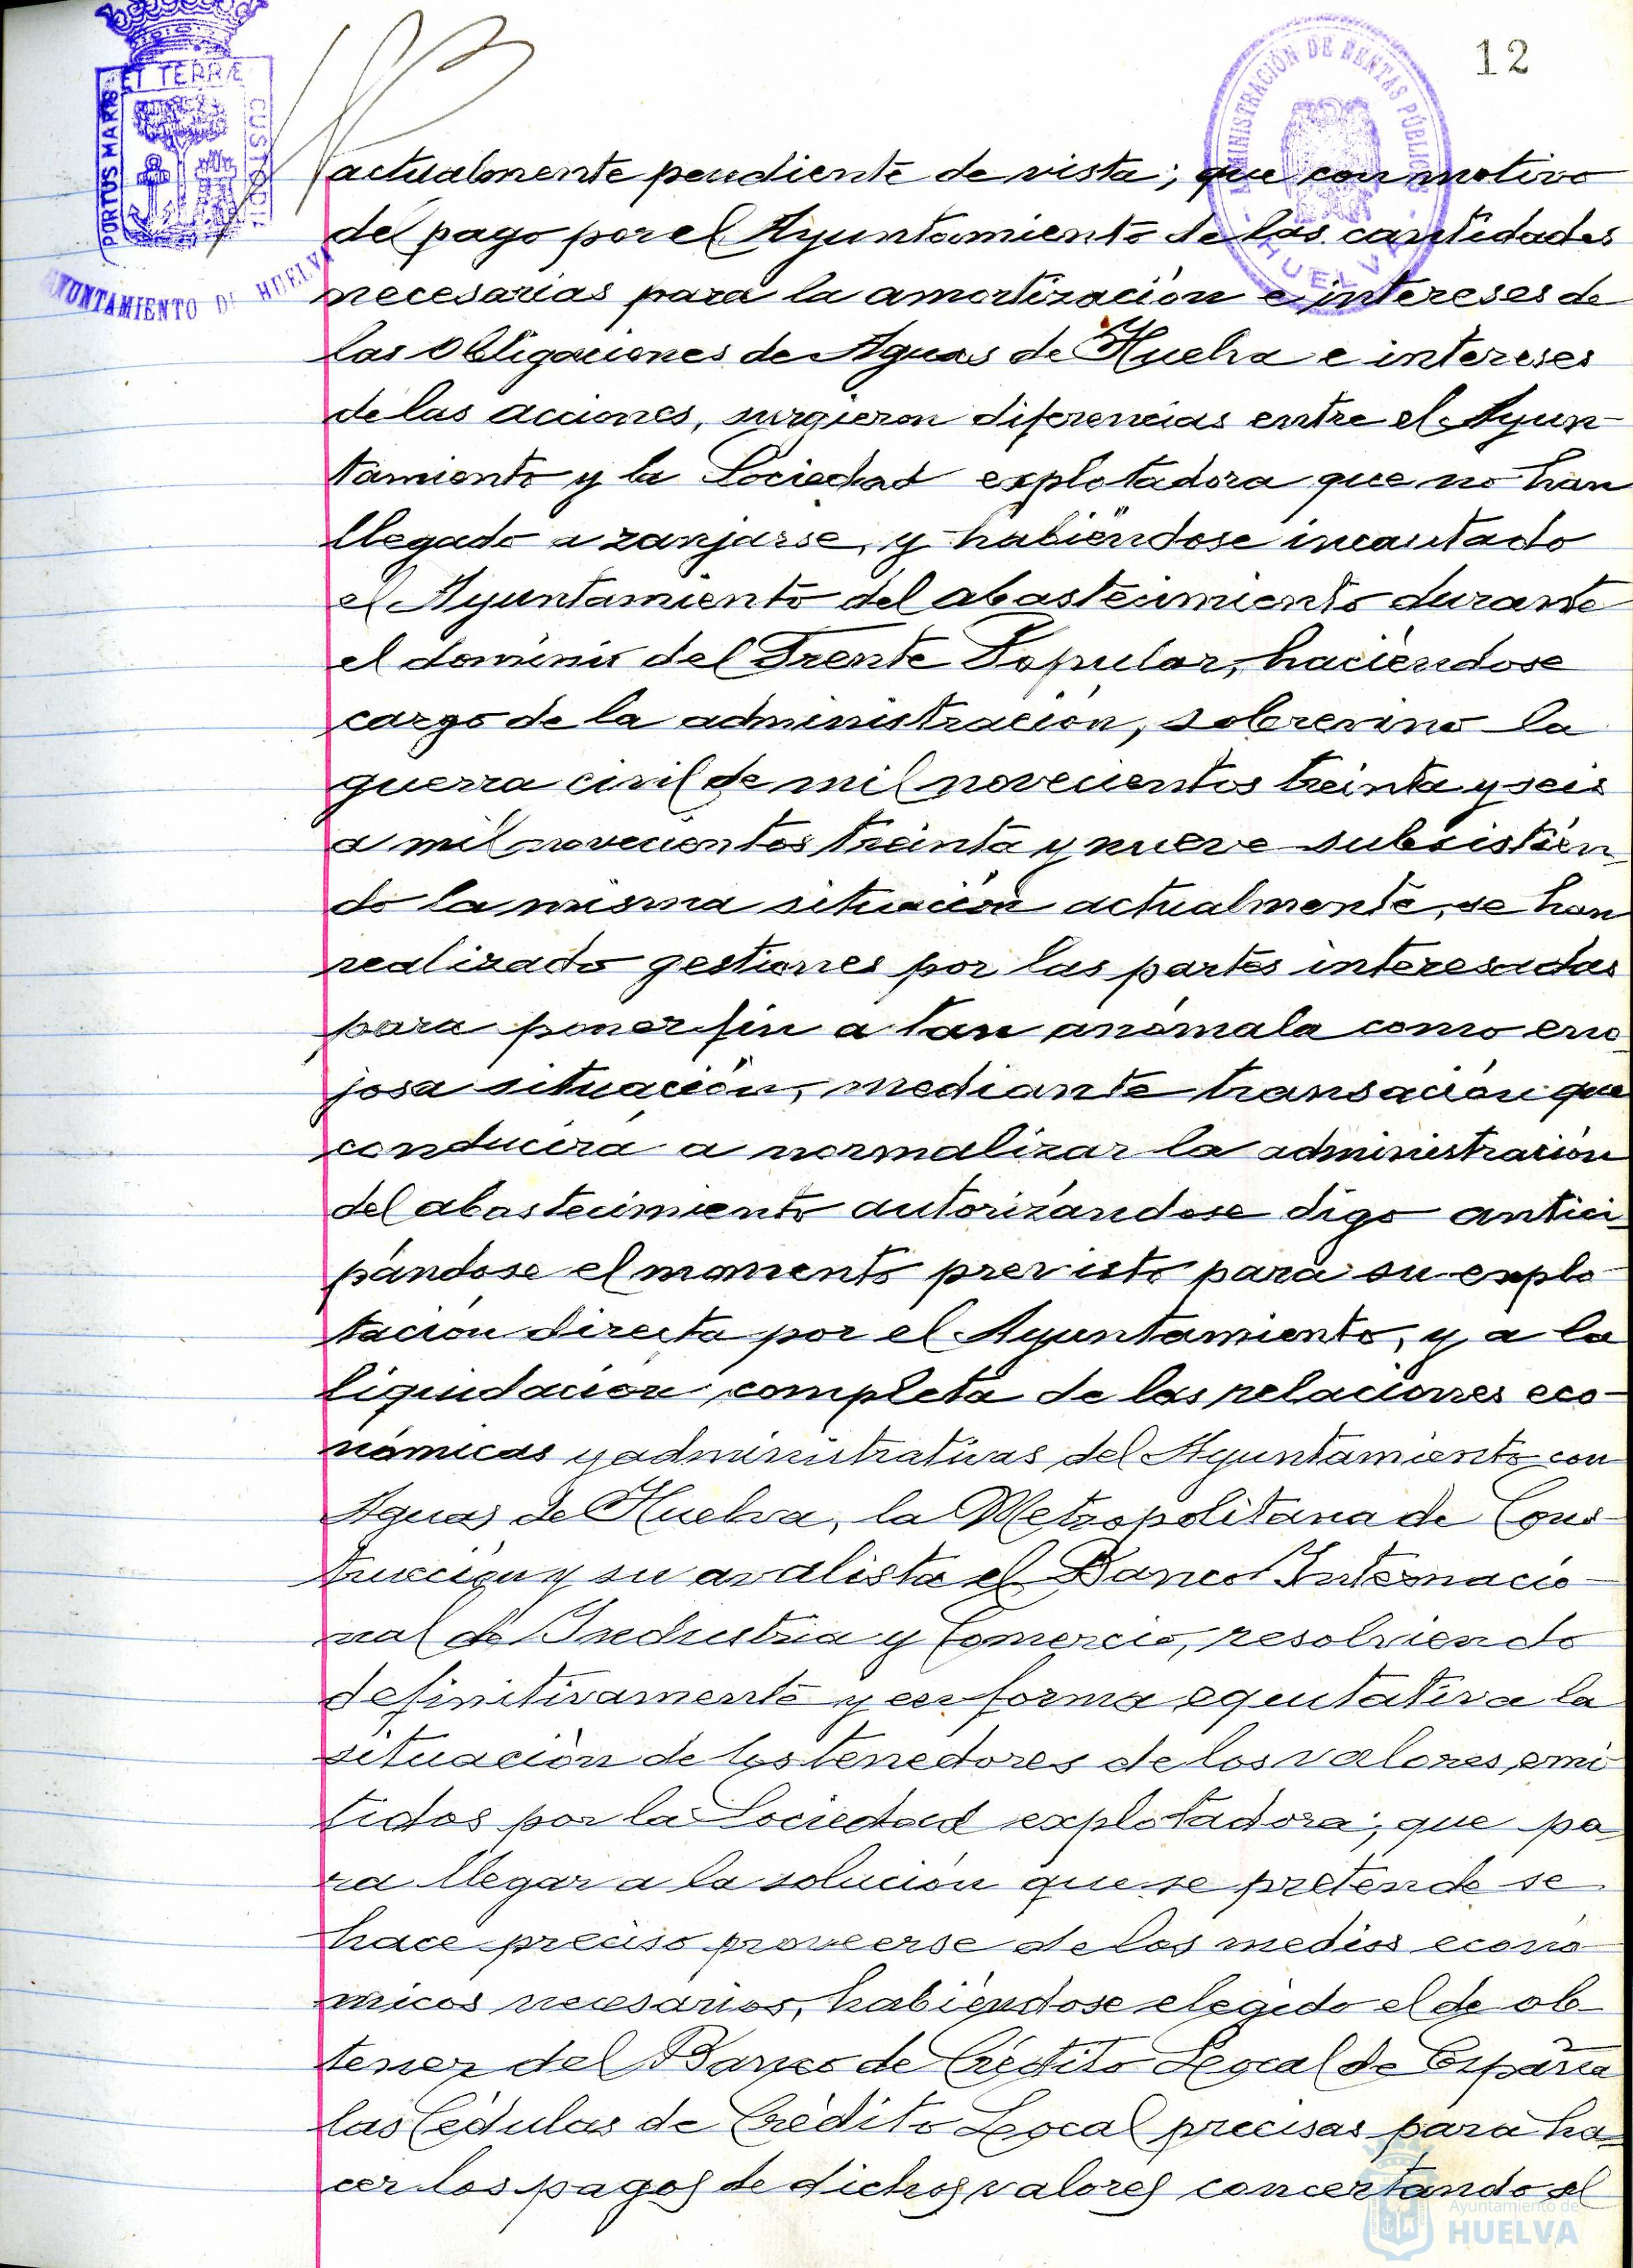 12
ET TERRÆ
PORTUS MARIS
CUSTODIA
AYUNTAMIENTO DE HUELVA
ADMINISTRACIÓN DE RENTAS PÚBLICAS
- HUELVA -
actualmente pendiente de vista; que con motivo
del pago por el Ayuntamiento de las cantidades
necesarias para la amortización e intereses de
las obligaciones de Aguas de Huelva e intereses
de las acciones, surgieron diferencias entre el Ayun-
tamiento y la Sociedad explotadora que no han
llegado a zanjarse, y habiéndose incautado
el Ayuntamiento del abastecimiento durante
el dominio del Frente Popular, haciéndose
cargo de la administración, sobrevino la
guerra civil de mil novecientos treinta y seis
a mil novecientos treinta y nueve subsistien-
do la misma situación actualmente, se han
realizado gestiones por las partes interesadas
para poner fin a tan anómala como eno-
josa situación, mediante transación que
conducirá a normalizar la administración
del abastecimiento autorizándose digo antici-
pándose el momento previsto para su explo-
tación directa por el Ayuntamiento, y a la
liquidación completa de las relaciones eco-
nómicas y administrativas del Ayuntamiento con
Aguas de Huelva, la Metropolitana de Cons-
trucción y su avalista el Banco Internacio-
nal de Industria y Comercio, resolviendo
definitivamente y en forma equitativa la
situación de los tenedores de los valores emi-
tidos por la Sociedad explotadora; que pa-
ra llegar a la solución que se pretende se
hace preciso proveerse de los medios econó-
micos necesarios, habiéndose elegido el de ob-
tener del Banco de Crédito Local de España
las Cédulas de Crédito Local precisas para ha-
cer los pagos de dichos valores concertando el
Ayuntamiento de
HUELVA